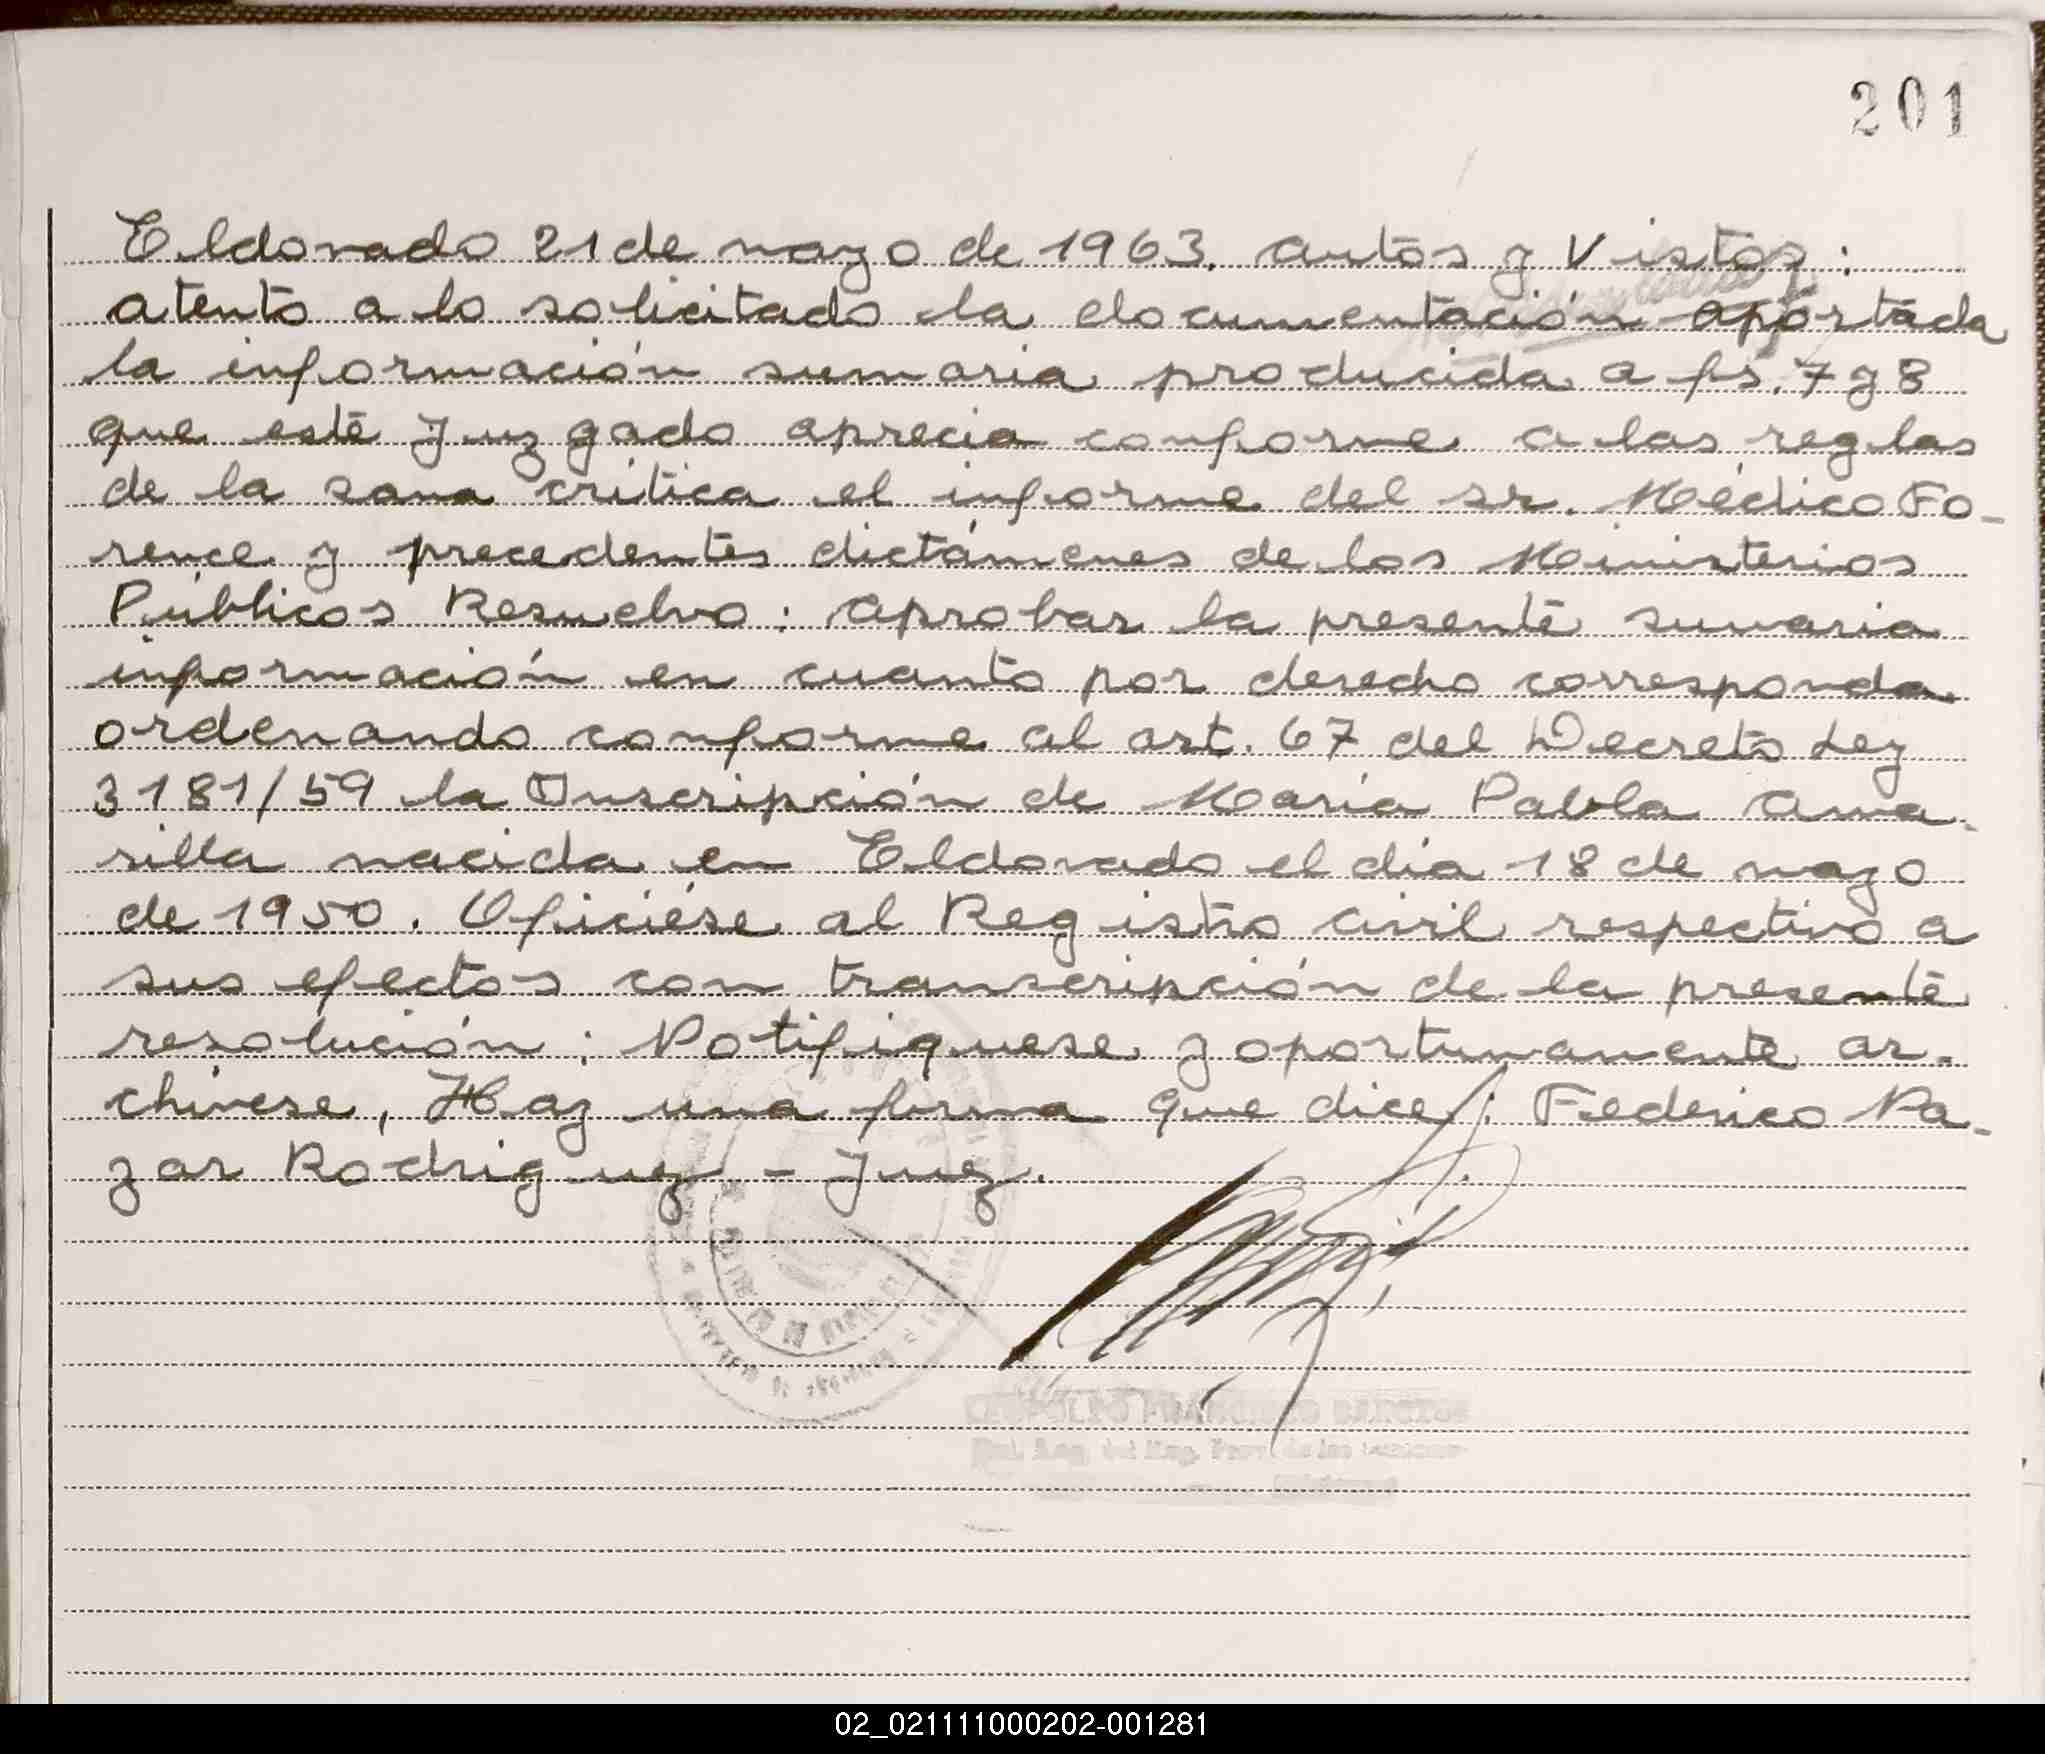 201
Eldorado 21 de mayo de 1963. Autos y Vistos:
atento a lo solicitado la documentación aportada
la información sumaria producida a fs. 7 y 8
que este Juzgado aprecia conforme a las reglas
de la sana crítica el informe del sr. Médico Fo-
rence y precedentes dictámenes de los Ministerios
Públicos Resuelvo: Aprobar la presente sumaria
información en cuanto por derecho corresponda
ordenando conforme al art. 67 del Decreto Ley
3181/59 la Inscripción de María Pabla Ama-
rilla nacida en Eldorado el día 18 de mayo
de 1950. Ofíciése al Registro Civil respectivo a
sus efectos con transcripción de la presente
resolución; Notifiquese y oportunamente ar-
chivese, Hay una firma que dice: Federico Na-
zar Rodriguez - Juez.
02_021111000202-001281